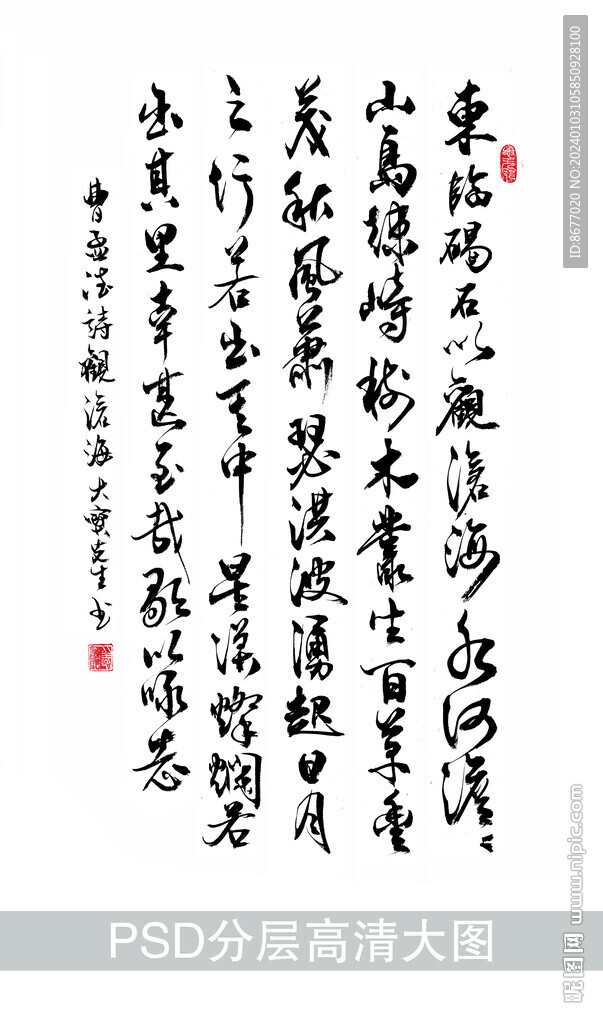 東臨碣石以觀滄海水何澹々
山島竦峙樹木叢生百草豐
茂秋風蕭瑟洪波湧起日月
之行若出其中星漢燦爛若
出其里幸甚至哉歌以咏志
曹孟德詩觀滄海大寶先生书
ID:8677020 NO:20240103105850928100
昵图网 www.nipic.com
PSD分层高清大图